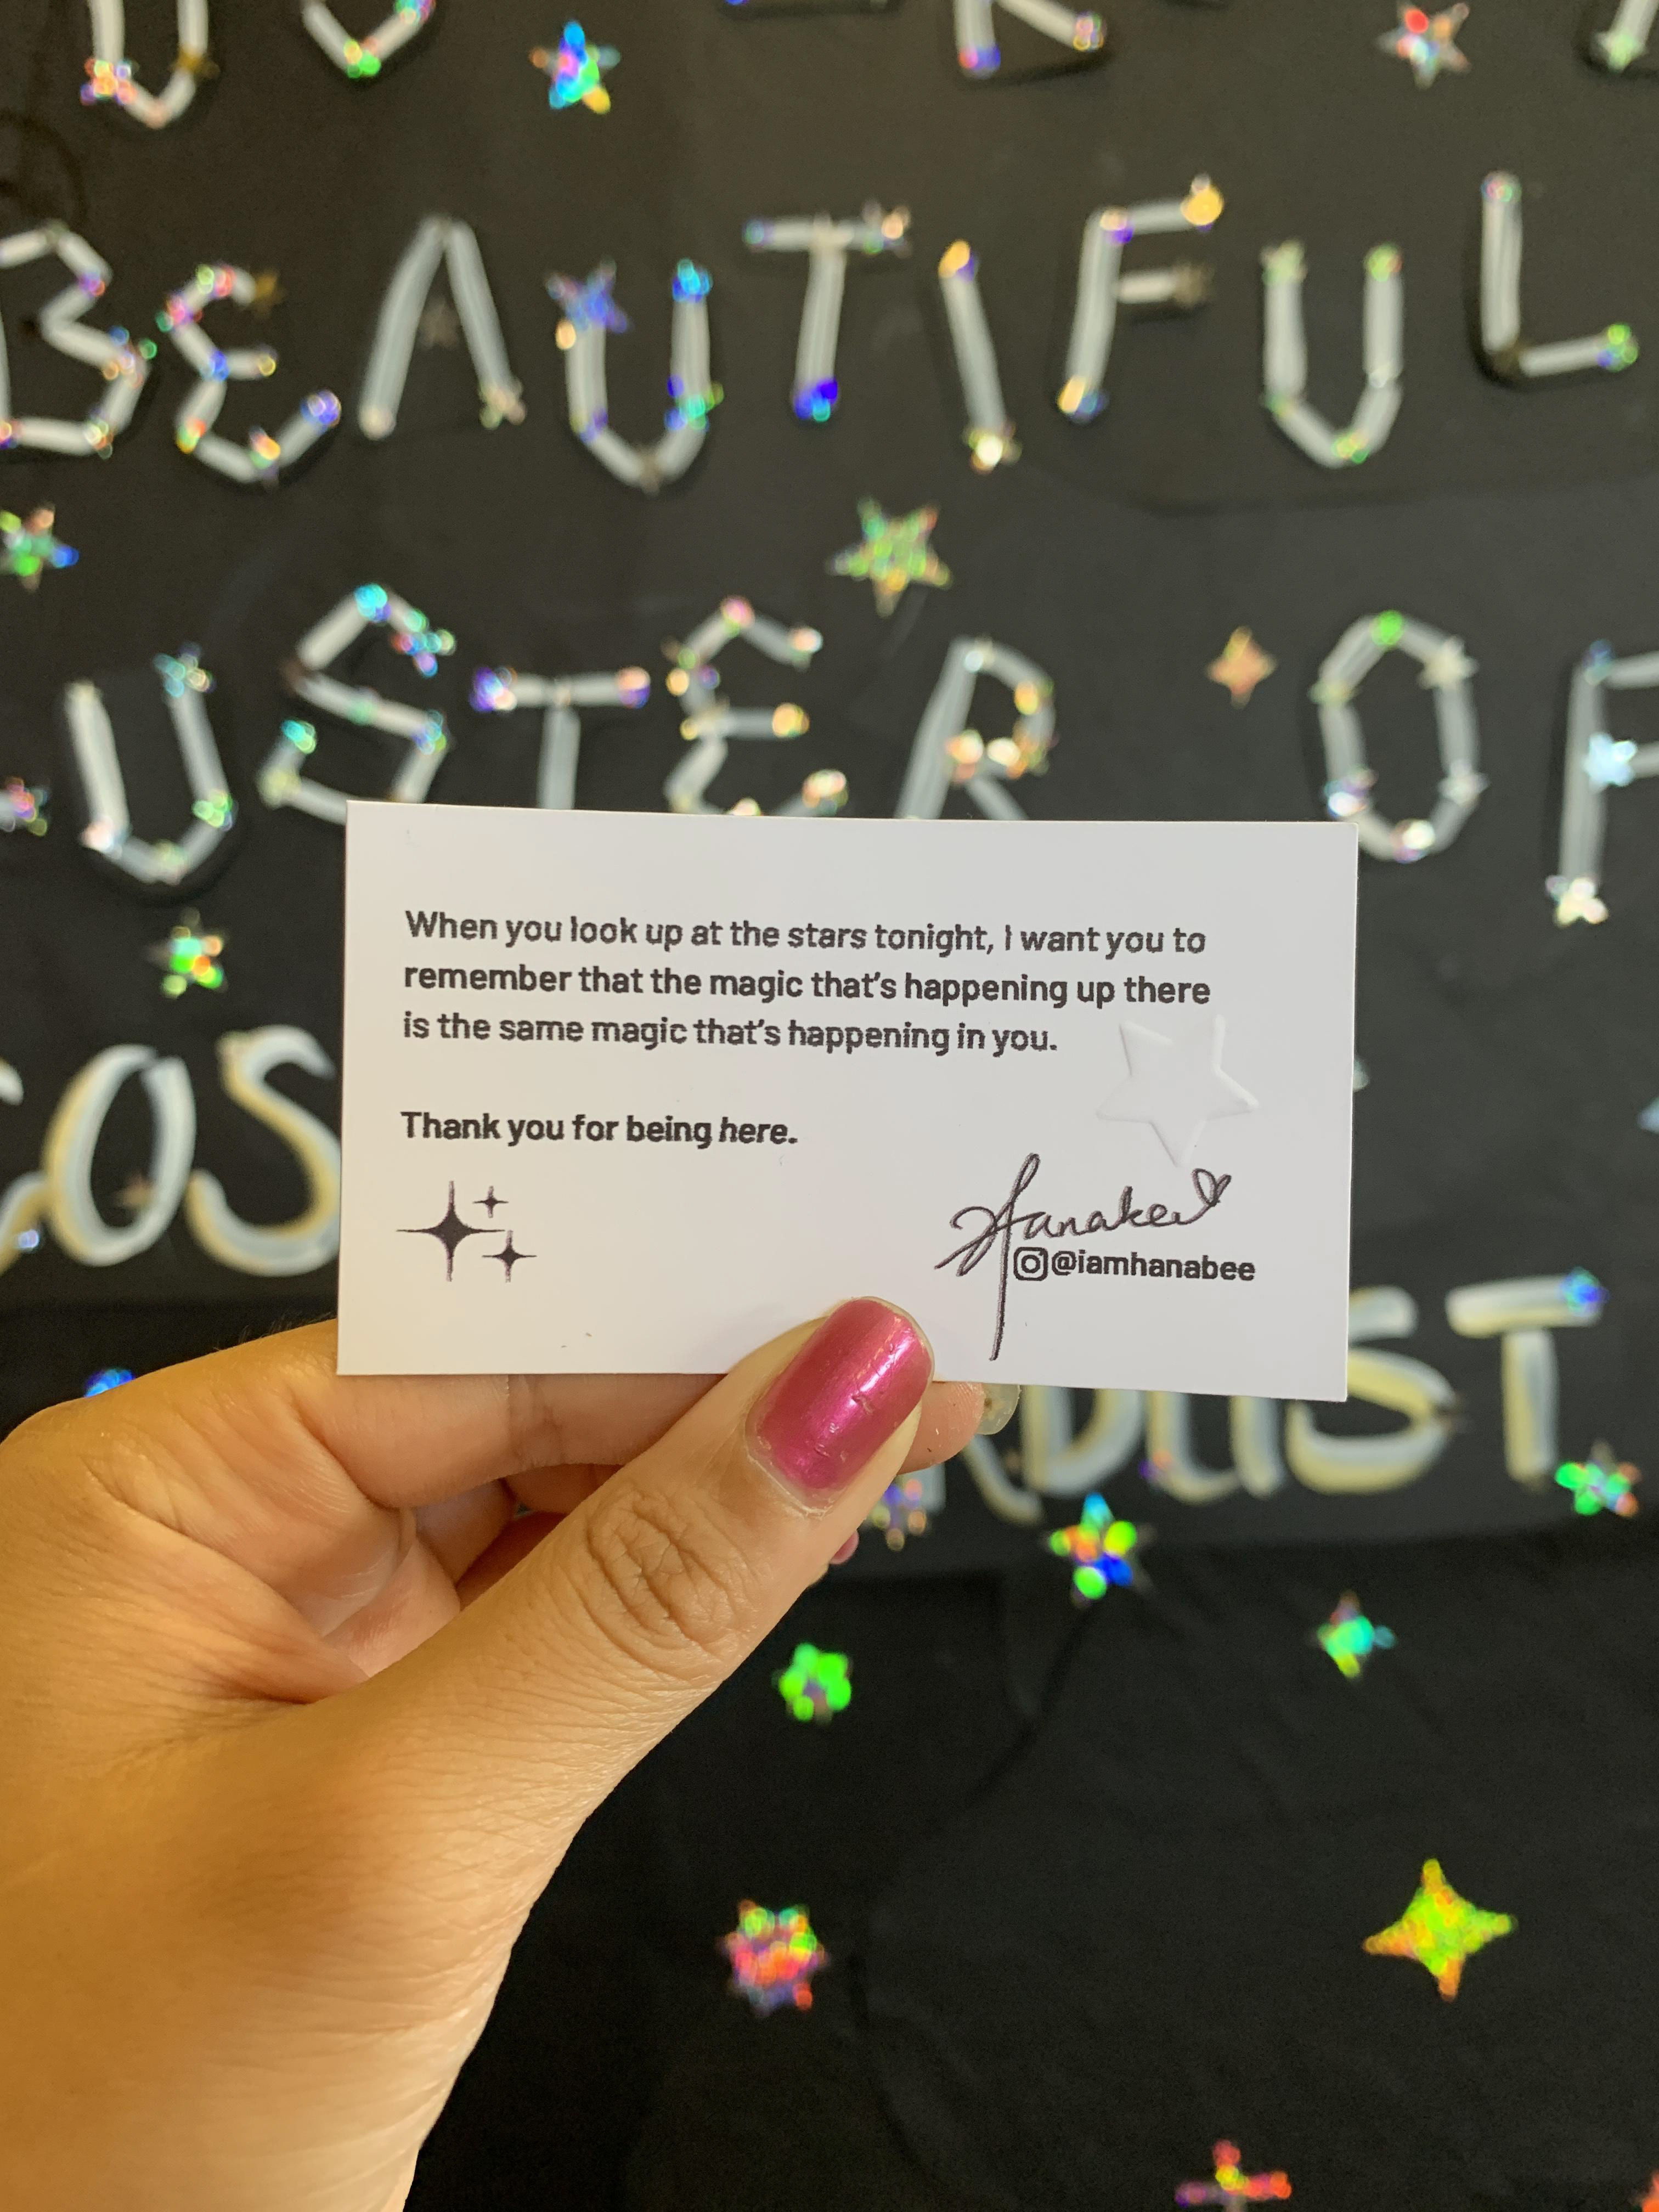 BEAUTIFUL
OF
When you look up at the stars tonight, I want you to
remember that the magic that's happening up there
is the same magic that's happening in you.
Thank you for being here.
@iamhanabee